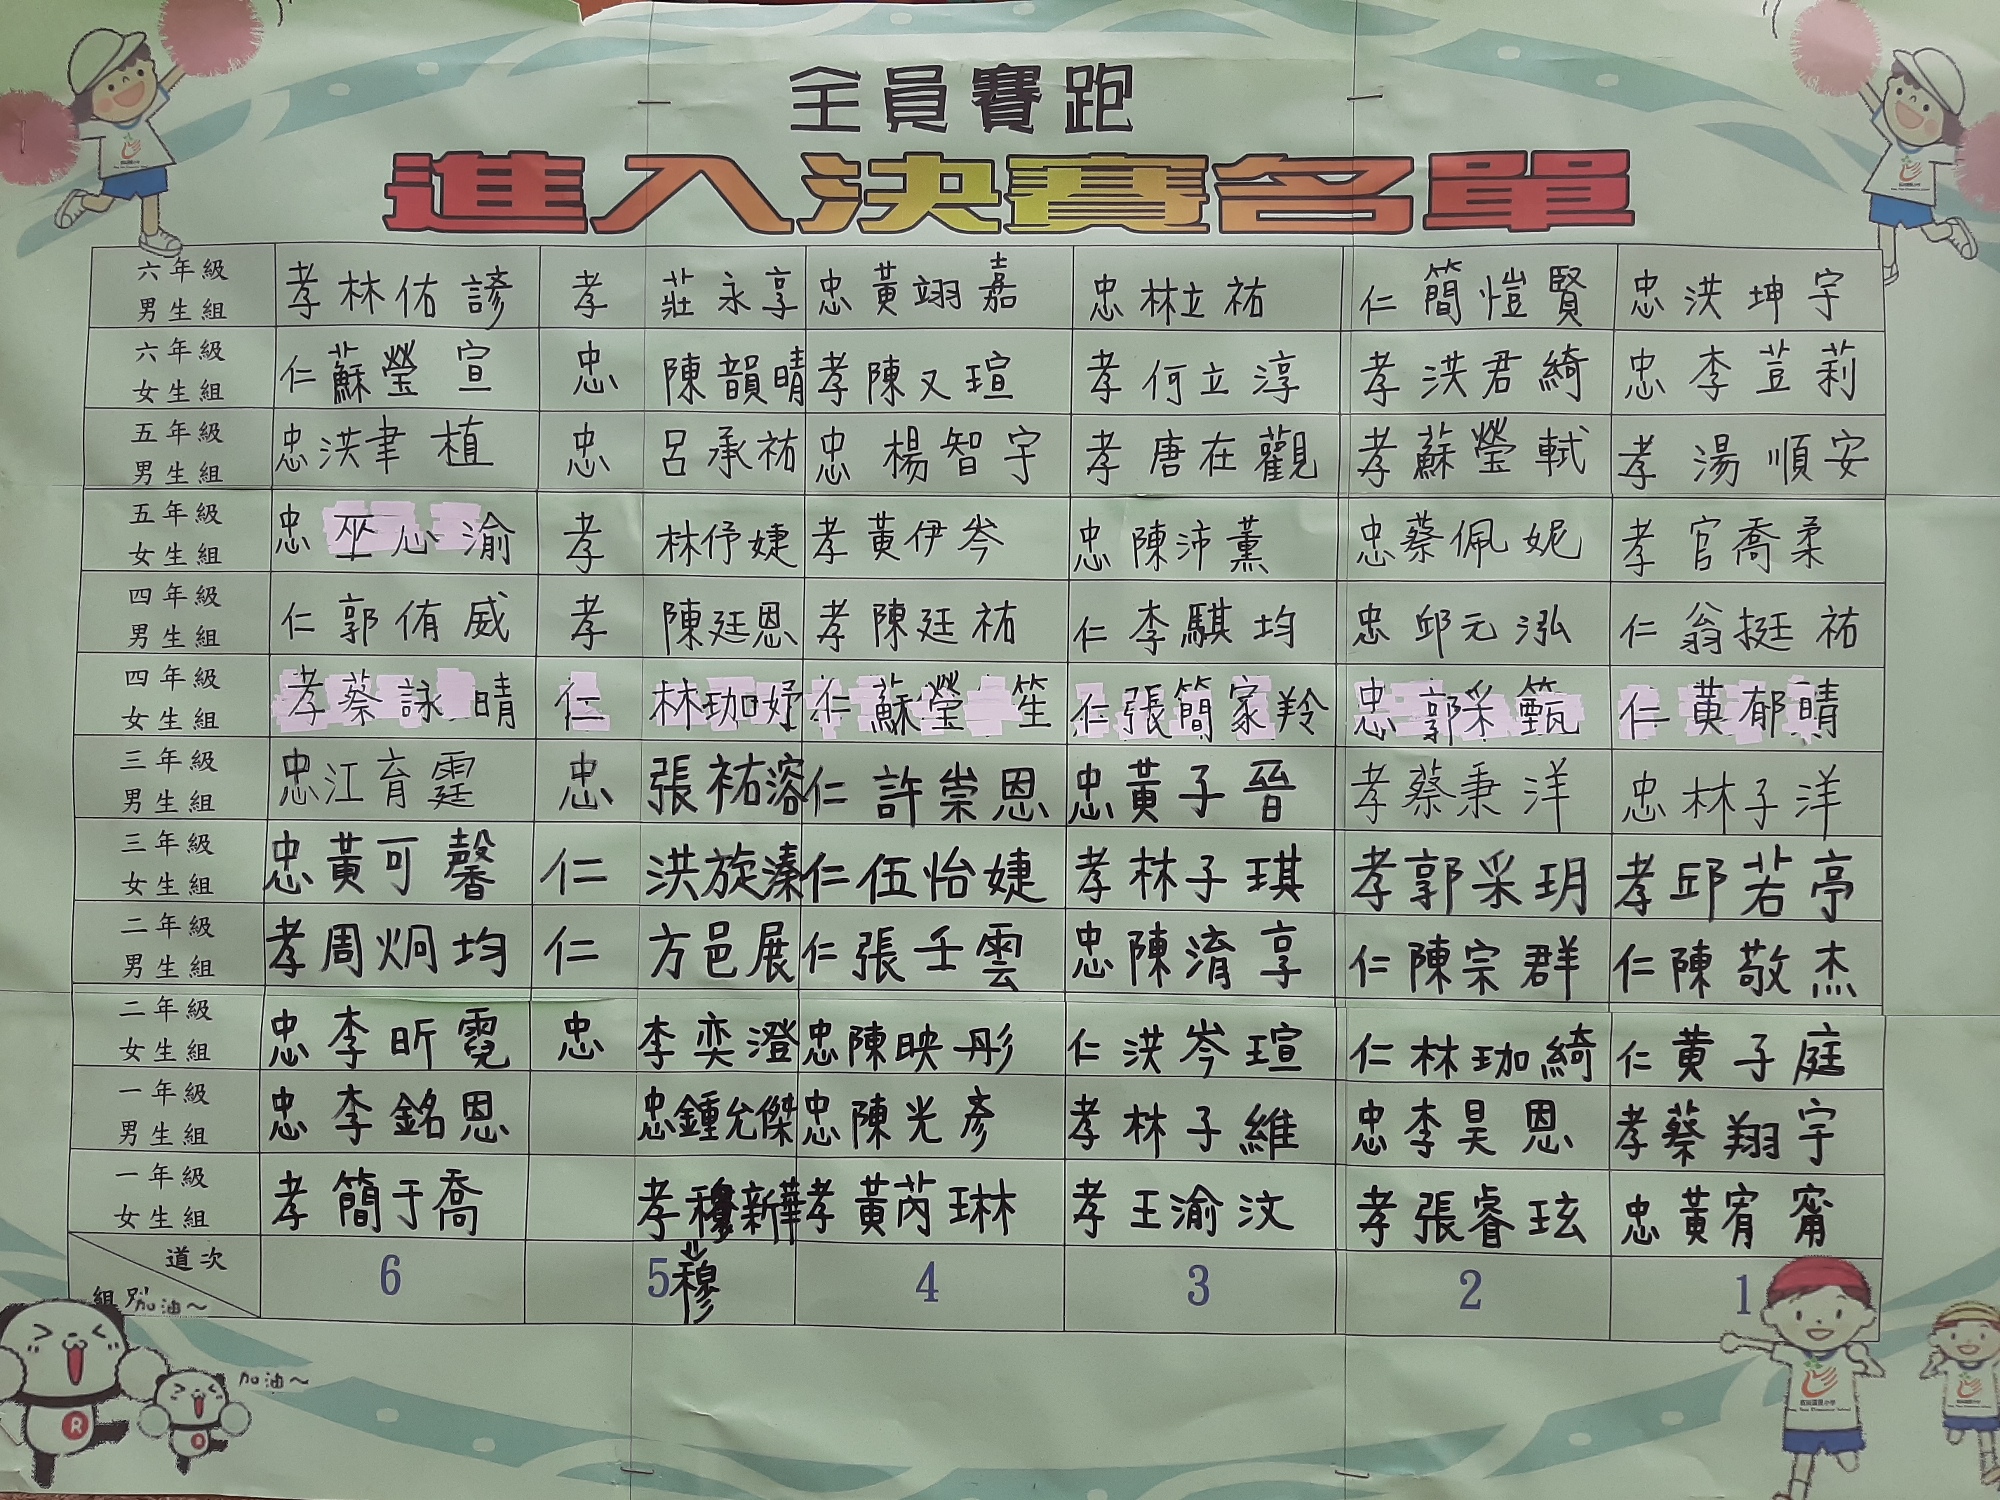 全員賽跑
進入決賽名單
六年級男生組 孝林佑諺 孝莊永享 忠黃翊嘉 忠林立祐 仁簡愷賢 忠洪坤宇
六年級女生組 仁蘇瑩宣 忠陳韻晴 孝陳又瑄 孝何立淳 孝洪君綺 忠李荳莉
五年級男生組 忠洪聿植 忠呂承祐 忠楊智宇 孝唐在觀 孝蘇瑩軾 孝湯順安
五年級女生組 忠巫心渝 孝林伃婕 孝黃伊岑 忠陳沛薰 忠蔡佩妮 孝官喬柔
四年級男生組 仁郭侑威 孝陳廷恩 孝陳廷祐 仁李騏均 忠邱元泓 仁翁挺祐
四年級女生組 孝蔡詠晴 仁林珈妤 仁蘇瑩笙 仁張簡家羚 忠郭采甄 仁黃郁晴
三年級男生組 忠江育霆 忠張祐溶 仁許崇恩 忠黃子晉 孝蔡秉洋 忠林子洋
三年級女生組 忠黃可馨 仁洪旋溱 仁伍怡婕 孝林子琪 孝郭采玥 孝邱若亭
二年級男生組 孝周炯均 仁方邑展 仁張壬雲 忠陳淯享 仁陳宗群 仁陳敬杰
二年級女生組 忠李昕霓 忠李奕澄 忠陳映彤 仁洪岑瑄 仁林珈綺 仁黃子庭
一年級男生組 忠李銘恩 忠鍾允傑 忠陳光彥 孝林子維 忠李昊恩 孝蔡翔宇
一年級女生組 孝簡于喬 孝穆新華 孝黃芮琳 孝王渝汶 孝張睿玹 忠黃宥甯
道次 組別 6 5 4 3 2 1
穆
加油～
加油～
R
R